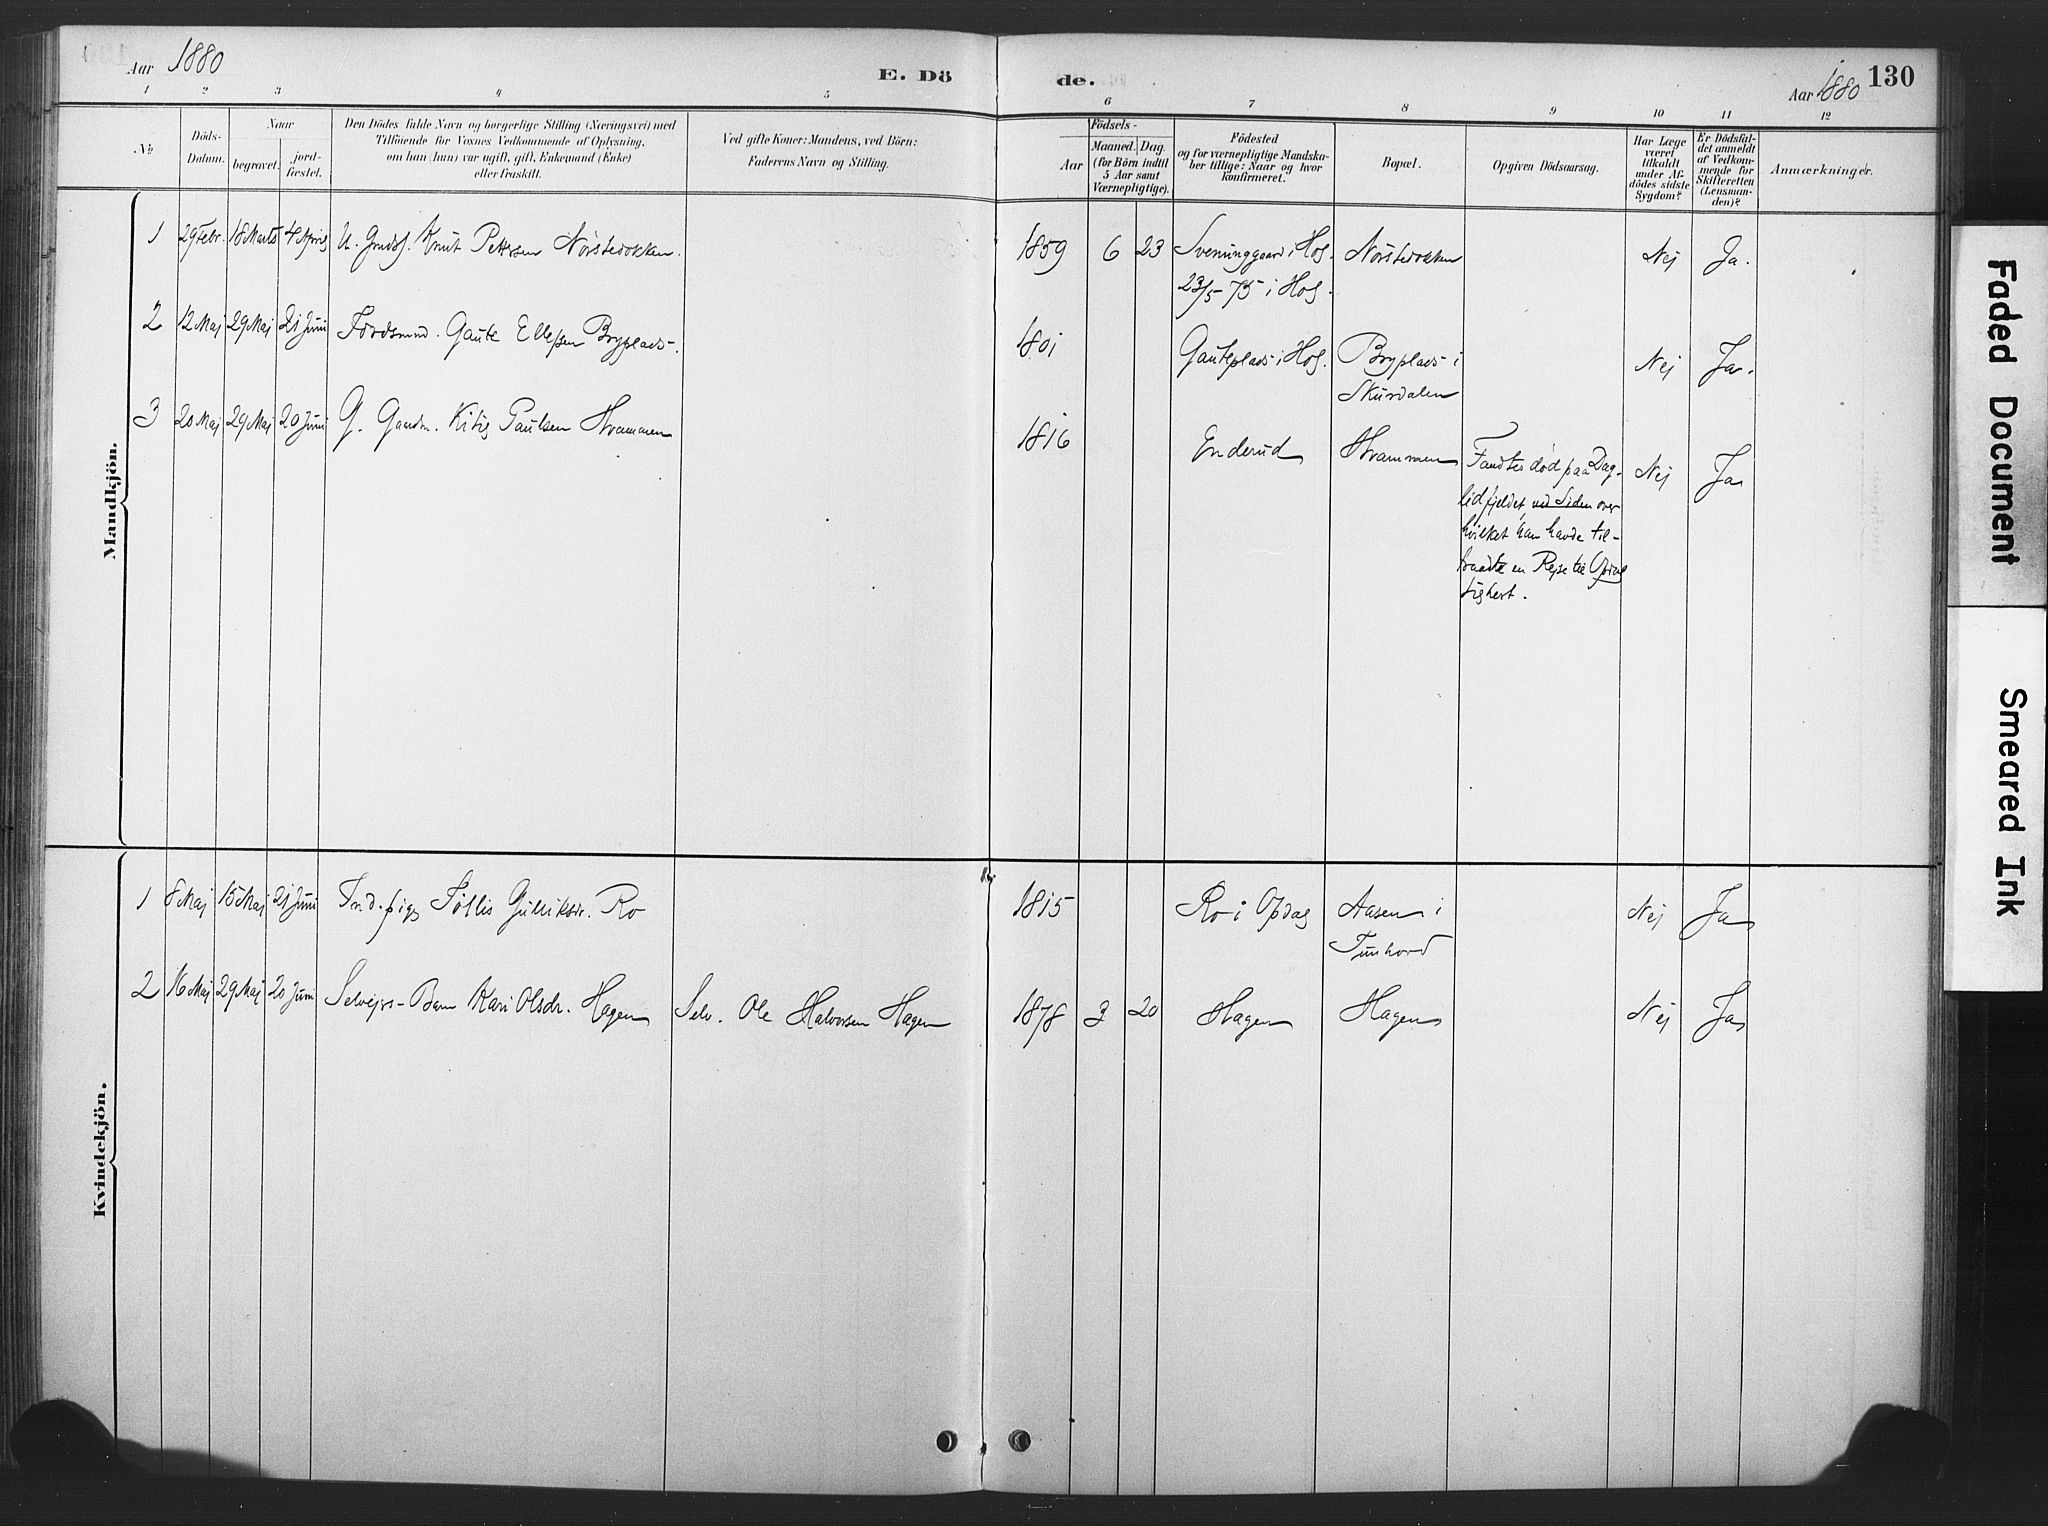 Aar 1880
E. Dö
de.
Aar 1880
130
1 2 3 4 5 6 7 8 9 10 11 12
No
Döds-
Datum.
Naar
begravet.
jord-
fæstet.
Den Dödes fulde Navn og borgerlige Stilling (Næringsvei) med
Tilföiende for Voxnes Vedkommende af Oplysning,
om han (hun) var ugift, gift, Enkemand (Enke)
eller fraskilt.
Ved gifte Koner: Mandens, ved Börn:
Faderens Navn og Stilling.
Födsels-
Aar
Maaned. Dag.
(for Börn indtil
5 Aar samt
Værnepligtige).
Födested
og for værnepligtige Mandska-
ber tillige: Naar og hvor
konfirmeret.
Bopæl.
Opgiven Dödsaarsag.
Har Læge
været
tilkaldt
under Af-
dödes sidste
Sygdom?
Er Dödsfal-
det anmeldt
af Vedkom-
mende for
Skifteretten
(Lensman-
den)?
Anmærkninger.
Mandkjön.
1 29 Febr. 18 Marts 4 April U. Knut Pettersen Nørstedokken. 1859 6 23 Sveninggaard i Hol. Nørstedokken Nej Ja.
23/5 75 i Hol.
2 12 Maj 29 Maj 21 Juni Fordsmnd. Gaute Ellefsen Bryplads. 1801 Gauteplads i Hol. Bryplads i Nej Ja.
Skurdalen
3 20 Maj 29 Maj 20 Juni G. Gaardm. Kitig Paulsen Hvammen 1816 Enderud Hvammen Fandtes død paa Dag- Nej Ja
lidfjeldet, ved Siden over
hvilket han havde til-
traadte en Rejse til Opdal
Kvindekjön.
1 8 Maj 15 Maj 21 Juni Ind. pige Gulliksdr. Ro 1815 Ro i Opdal Aasen i Nej Ja
Tunhovd
2 16 Maj 29 Maj 20 Juni Selvejrs-Barn Kari Olsdr. Hagen Selv. Ole Halvorsen Hagen 1878 3 20 Hagen Hagen Nej Ja
Faded Document
Smeared Ink